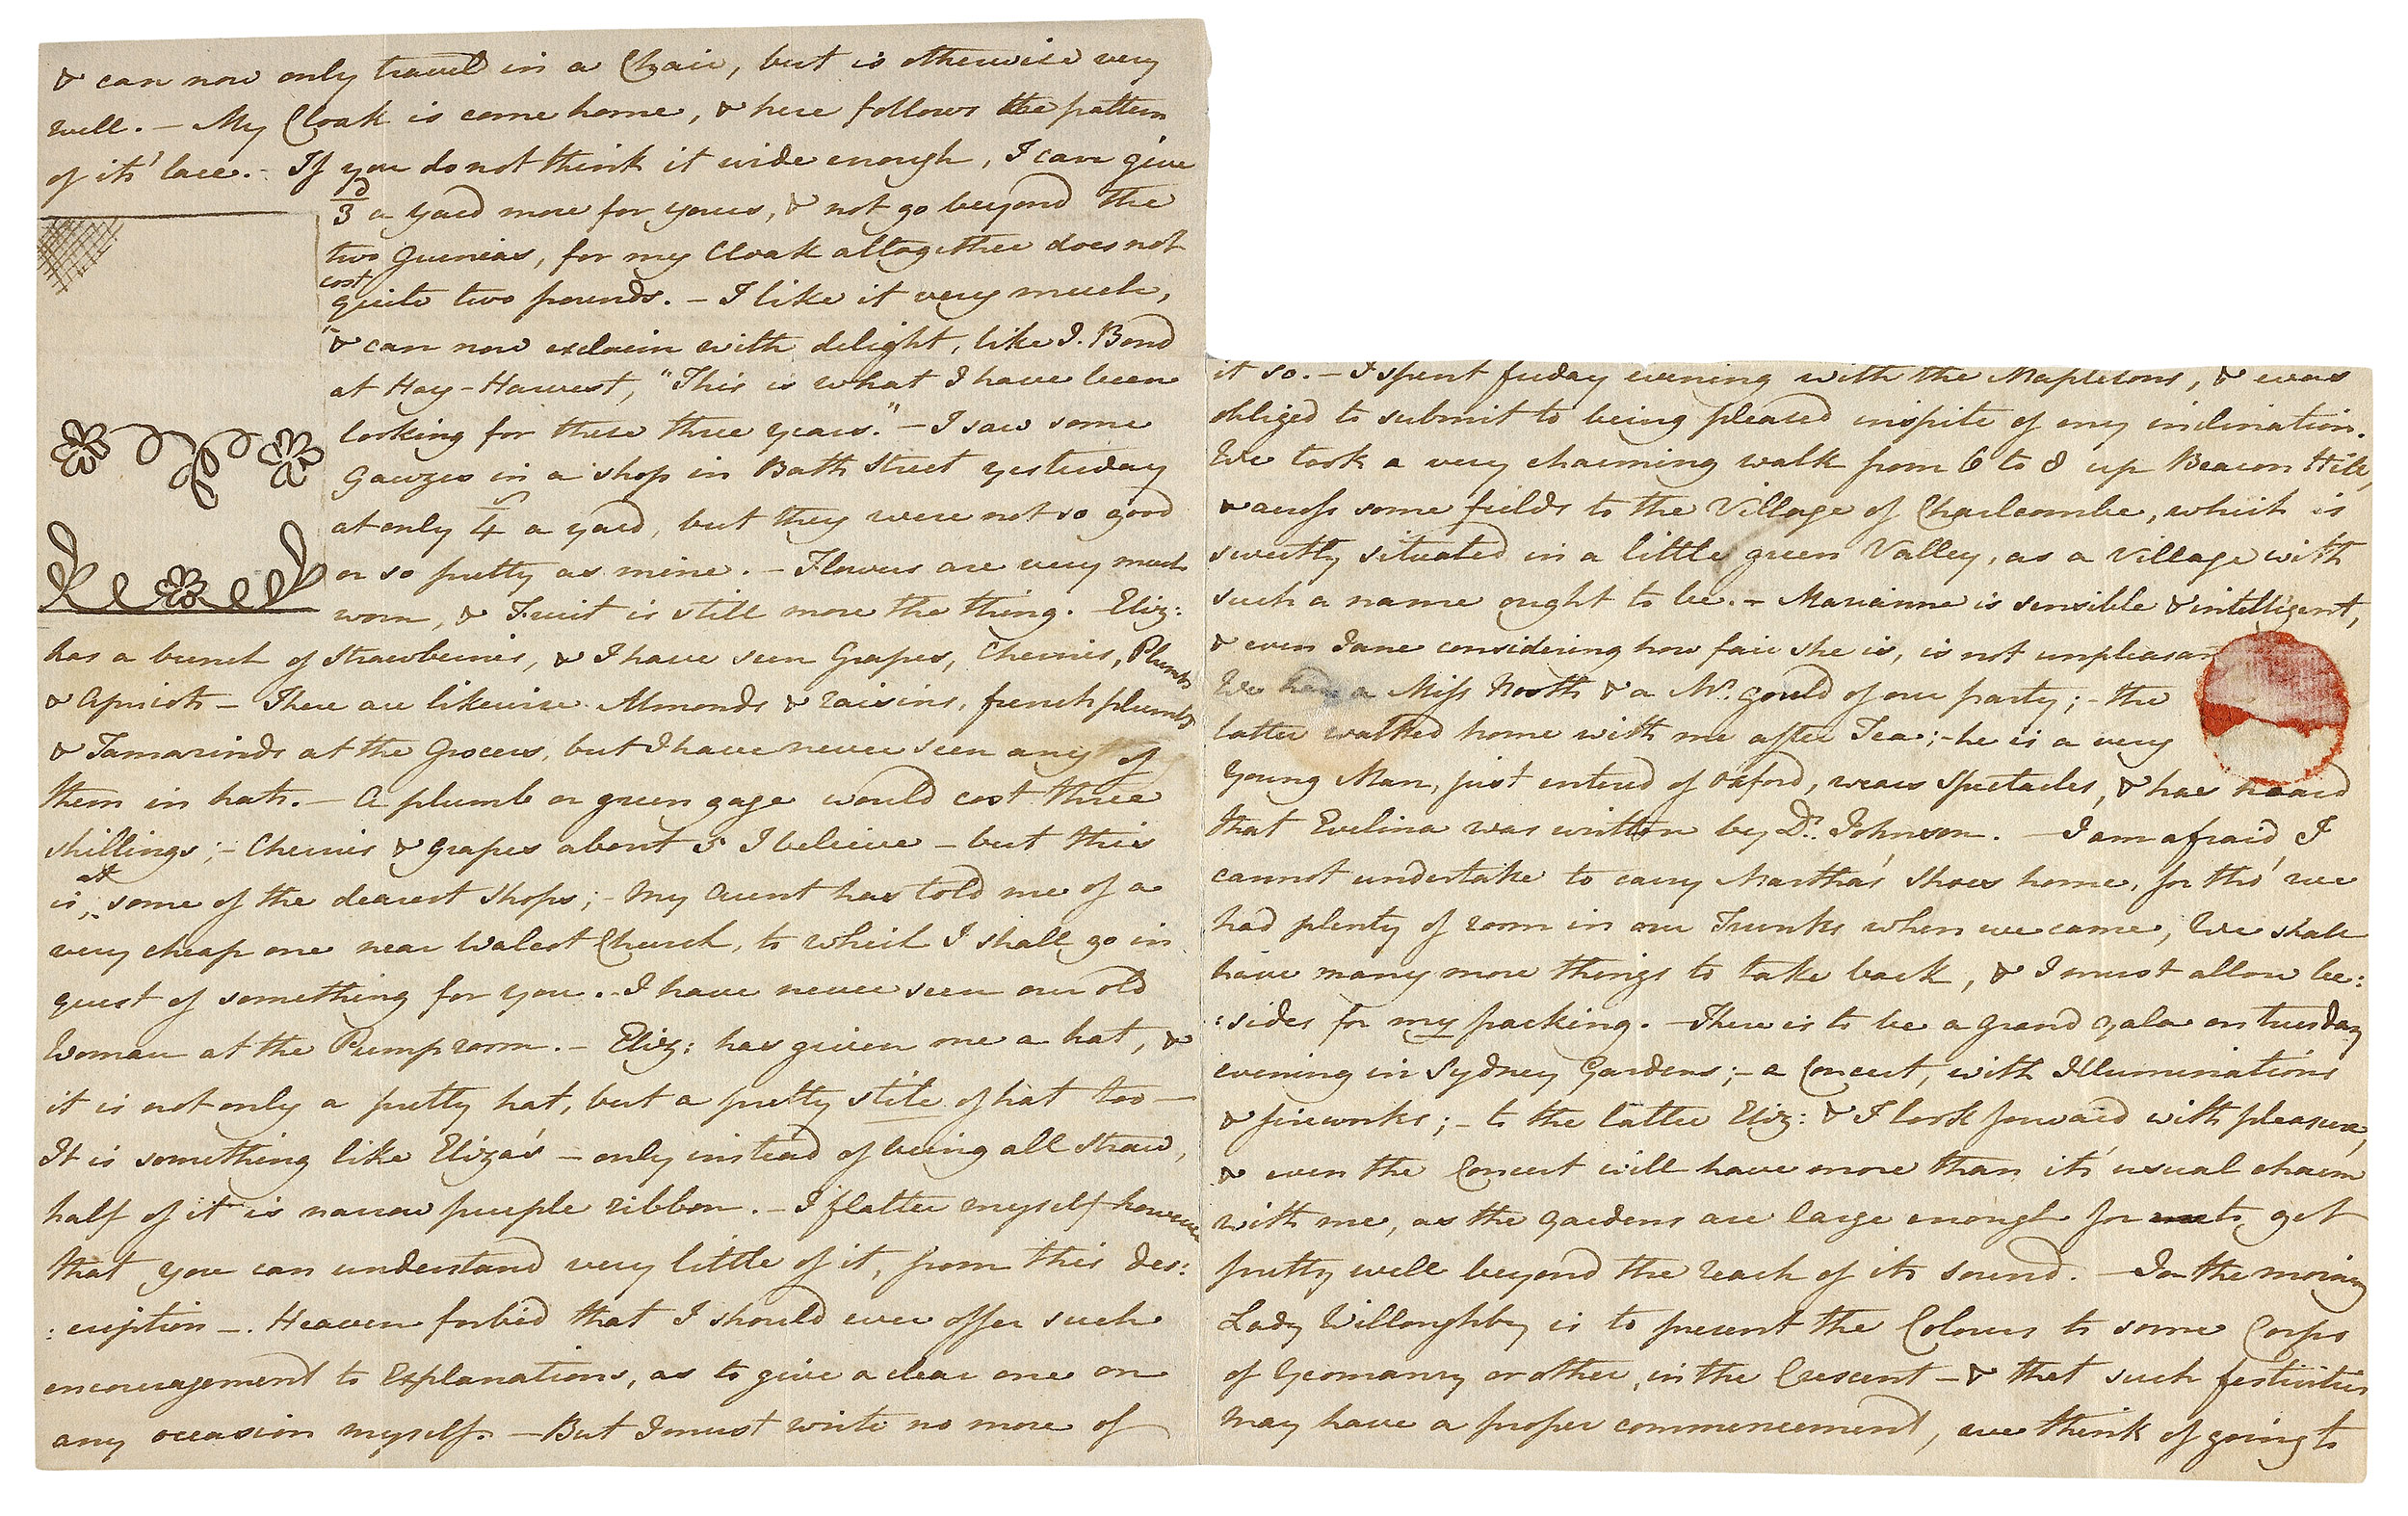 & can now only travel in a Chair, but is otherwise very
well. – My Cloak is come home, & here follows the pattern
of its' lace. – If you do not think it wide enough, I can give
3d a yard more for yours, & not go beyond the
two Guineas, for my Cloak altogether does not
cost quite two pounds. – I like it very much,
& can now exclaim with delight, like J. Bond
at Hay-Harvest, "This is what I have been
looking for these three years." – I saw some
Gauzes in a shop in Bath Street yesterday
at only 4s a yard, but they were not so good
or so pretty as mine. – Flowers are very much
worn, & Fruit is still more the thing. – Eliz:
has a bunch of Strawberries, & I have seen Grapes, Cherries, Plumbs
& Apricots – There are likewise Almonds & raisins, french plumbs
& Tamarinds at the Grocers, but I have never seen any of
them in hats. – A plumb or green gage would cost three
shillings; – Cherries & Grapes about 5 I believe – but this
is at some of the dearest Shops; – My Aunt has told me of a
very cheap one near Walcot Church, to which I shall go in
quest of something for you. – I have never seen an old
Woman at the Pump room. – Eliz: has given me a hat, &
it is not only a pretty hat, but a pretty stile of hat too –
It is something like Eliza's – only instead of being all straw,
half of it is narrow purple ribbon. – I flatter myself however
that you can understand very little of it, from this des:
:cription –. Heaven forbid that I should ever offer such
encouragement to Explanations, as to give a clear one on
any occasion myself. – But I must write no more of
it so. – I spent friday evening with the Mapletons, & was
obliged to submit to being pleased inspite of my inclination.
We took a very charming walk from 6 to 8 up Beacon Hill,
& across some fields to the Village of Charlcombe, which is
sweetly situated in a little green Valley, as a Village with
such a name ought to be. – Marianne is sensible & intelligent,
& even Jane considering how fair she is, is not unpleasant
We had a Miss North & a Mr. Gould of our party; – the
latter walked home with me after Tea; – he is a very
Young Man, just entered of Oxford, wears Spectacles, & has heard
that Evelina was written by Dr. Johnson. – I am afraid I
cannot undertake to carry Martha's Shoes home, for tho' we
had plenty of room in our Trunks when we came, We shall
have many more things to take back, & I must allow be:
:sides for my packing. – There is to be a grand gala on tuesday
evening in Sydney Gardens; – a Concert, with Illuminations
& fireworks; – to the latter Eliz: & I look forward with pleasure,
& even the Concert will have more than its' usual charm
with me, as the gardens are large enough for me to get
pretty well beyond the reach of its sound. – In the morning
Lady Willoughby is to present the Colours to some Corps
of Yeomanry or other, in the Crescent – & that such festivities
may have a proper commencement, we think of going to